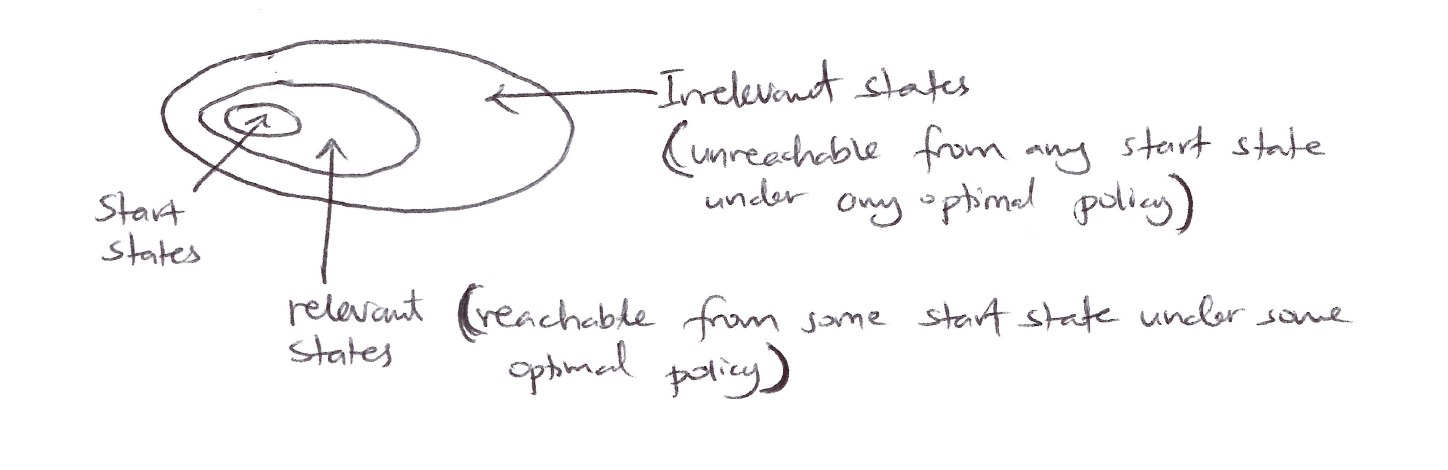 Irrelevant states
(unreachable from any start state
under any optimal policy)
Start
states
relevant (reachable from some start state under some
states
optimal policy)